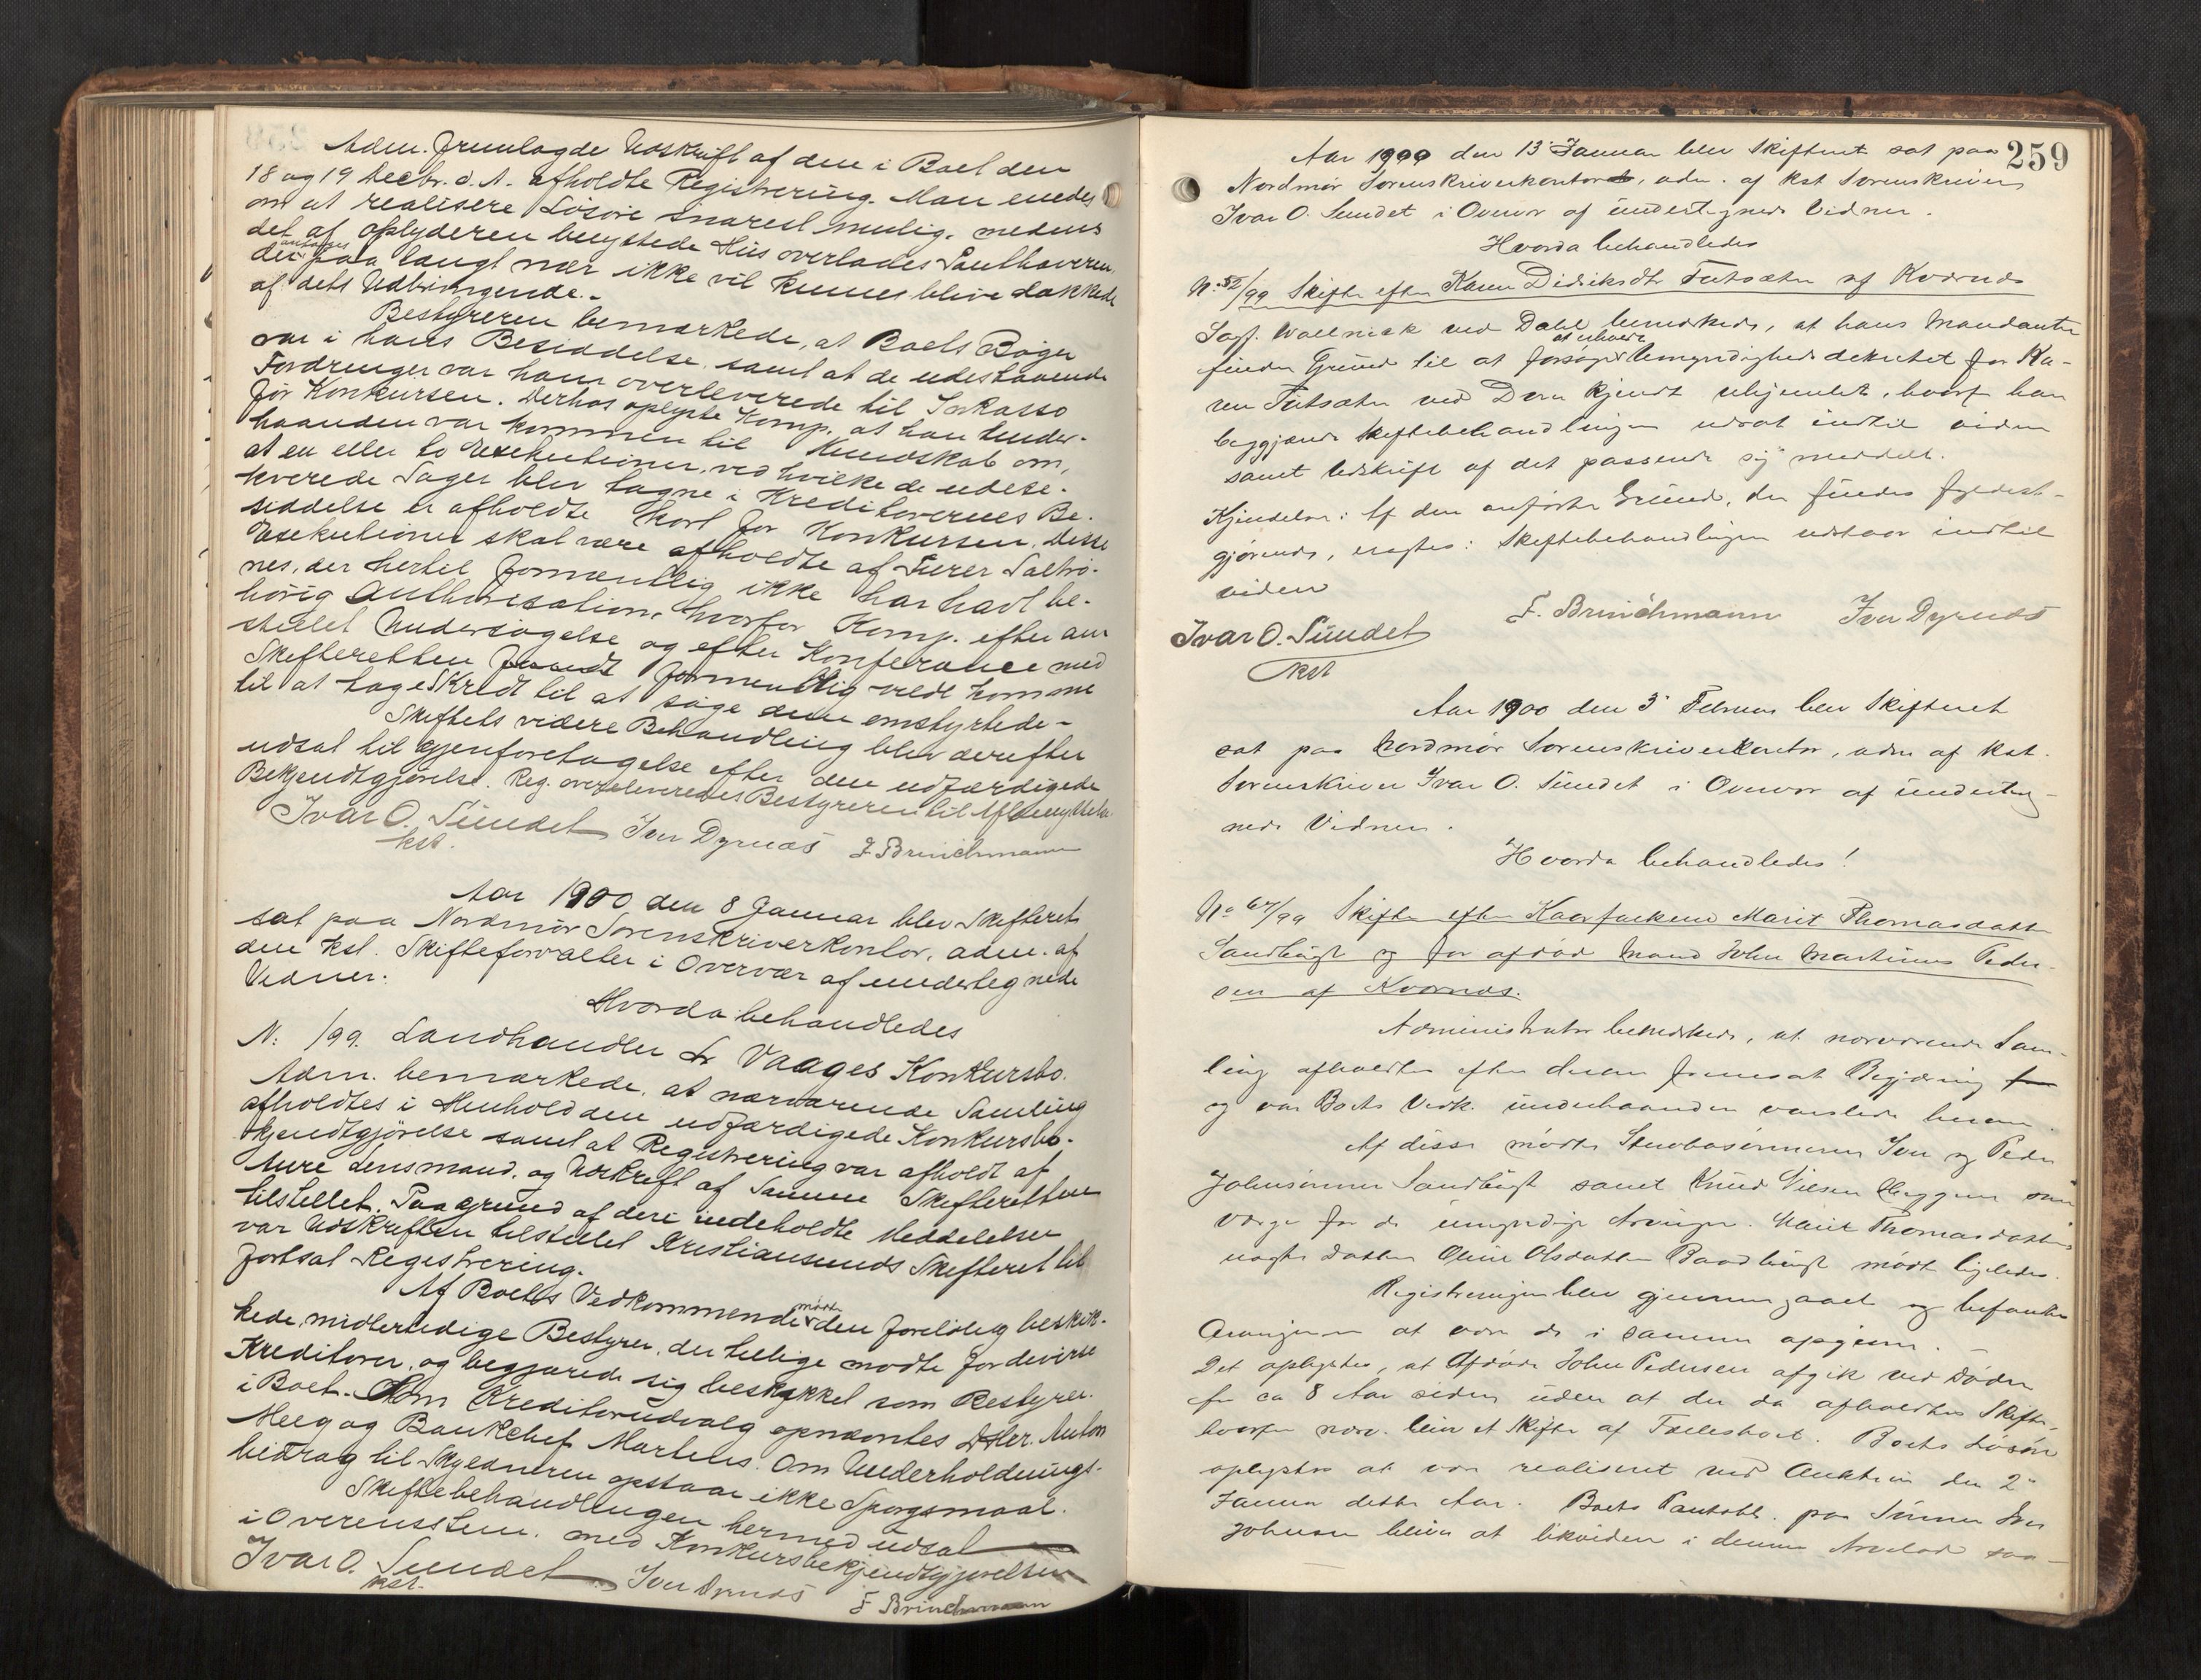 Adm. fremlagde Udskrift af den i Boet den
18 og 19 Decbr. d. A. afholdte Registrering. Man enedes
om at realisere Løsøre snarest mulig, medens
det af oplyderen beuystede Hus overlades Panthaveren,
antages
der paa langt nær ikke vil kunne blive dækkede
af dets Udbringende.
Bestyreren bemærkede, at Boets Bøger
var i hans Besiddelse, samt at de udestaaende
Fordringer var ham overleverede til Inkasso
før Konkursen. Derhos oplyste Komp. at han under-
haanden var kommen til Kundskab om,
at en eller to Exekutioner, ved hvilke de udexe-
kverede Sager blev tagne i Kreditorernes Be-
siddelse er afholdte kort før Konkursen. Disse
Exekutioner skal være afholdte af Furer Saltrø-
nes, der hertil formentlig ikke har havt be-
hørig Authorisation, hvorfor Komp. efter an-
stillet Undersøgelse og efter Konferance med
Skifteretten formentlig vilde komme
til at tage Skridt til at søge dem omstyrtede.
Skiftets videre Behandling blev derefter
udsat til Gjenforetagelse efter den udfærdigede
Bekjendtgjørelse. Reg. overleveredes Bestyreren til Afbenyttelse.
Ivar O. Sundet Iver Dyrnæs F. Brinchmann
kst.
Aar 1900 den 8 Januar blev Skifteret
sat paa Nordmør Sorenskriverkontor, adm. af
den kst. Skifteforvalter i Overvær af undertegnede
Vidner:
Hvorda behandledes
N: /99. Landhandler Vaages Konkursbo.
Adm. bemærkede, at nærværende Samling
afholdtes i Henhold den udfærdigede Konkursbe-
kjendtgjørelse samt at Registrering var afholdt af
Aure Lensmand, og Udskrift af Samme Skifteretten
tilstillet. Paa Grund af deri indeholdte Meddelelser
var Udskriften tilstillet Kristiansunds Skifteret til
fortsat Registrering.
mødte
Af Boets Vedkommende den foreløbig beskik-
kede, midlertidige Bestyrer, der tillige mødte for diverse
Kreditorer, og begjærede sig beskikket som Bestyrer
i Boet. Som Kreditorudvalg opnævntes Hr. Anton
Meeg og Bankchef Martens. Om Underholdnings-
bidrag til Skyldneren opstaar ikke Spørgsmaal.
Skiftebehandlingen hermed udsat
i Overensstem. med Konkursbekjendtgjørelsen
Ivar O. Sundet Iver Dyrnæs F Brinchmann
kst.
259
Aar 1900 den 13' Januar blev Skifteret sat paa
Nordmør Sorenskriverkontor, adm. af kst Sorenskriver
Ivar O. Sundet i Overvær af undertegnede Vidner.
Hvorda behandledes
No 52/99 Skifte efter Karen Didriksdtr Futsæter af Kvernes
Sagf. Wallnick ved Dahl bemærkede, at hans Mandanter
at erhverve
finder Grund til at forsøge Umyndighedsdekretet for Ka-
ren Futsæter ved Dom kjendt uhjemlet, hvorfor han
begjærede Skiftebehandlingen udsat indtil videre
samt Udskrift af det passerede sig meddelt.
Kjendelse: Af den anførte Grund, der findes fyldest-
gjørende, eragtes: Skiftebehandlingen udstaar indtil
videre
Ivar O. Sundet F. Brinchmann Iver Dyrnæs
kst
Aar 1900 den 3' Februar blev Skifteret
sat paa Nordmør Sorenskriverkontor, adm af kst.
Sorenskriver Ivar O. Sundet i Overvær af underteg-
nede Vidner.
Hvorda behandledes!
No 67/99 Skifte efter Kaarfolkene Marit Thomasdatter
Sandbugt og før afdød Mand John Martinus Peder-
sen af Kvernes.
Administrator bemærkede, at nærværende Sam-
ling afholdtes efter derom fremsat Begjæring
og var Boets Vedk. underhaanden varslede herom.
Af disse mødte Stervbosønnerne Iver og Peder
Johnsønner Sandbugt samt Knud Nilsen som
Værge for de umyndige Arvinger. Marit Thomasdatters
uægte Datter Oline Olsdatter mødte ligeledes.
Registreringen blev gjennemgaaet og befandtes
Arvingerne at være de i samme opgivne.
Det oplystes, at Afdøde John Pedersen afgik ved Døden
for ca 8 Aar siden uden at der da afholdtes Skifte,
hvorfor nærv. bliver et Skifte af Fællesboet. Boets Løsøre
oplystes at være realiseret ved Auktion den 2'
Januar dette Aar. Boets Pantobl. paa Sønnen Iver
Johnsen bliver at likvidere i dennes Arvelod saa-